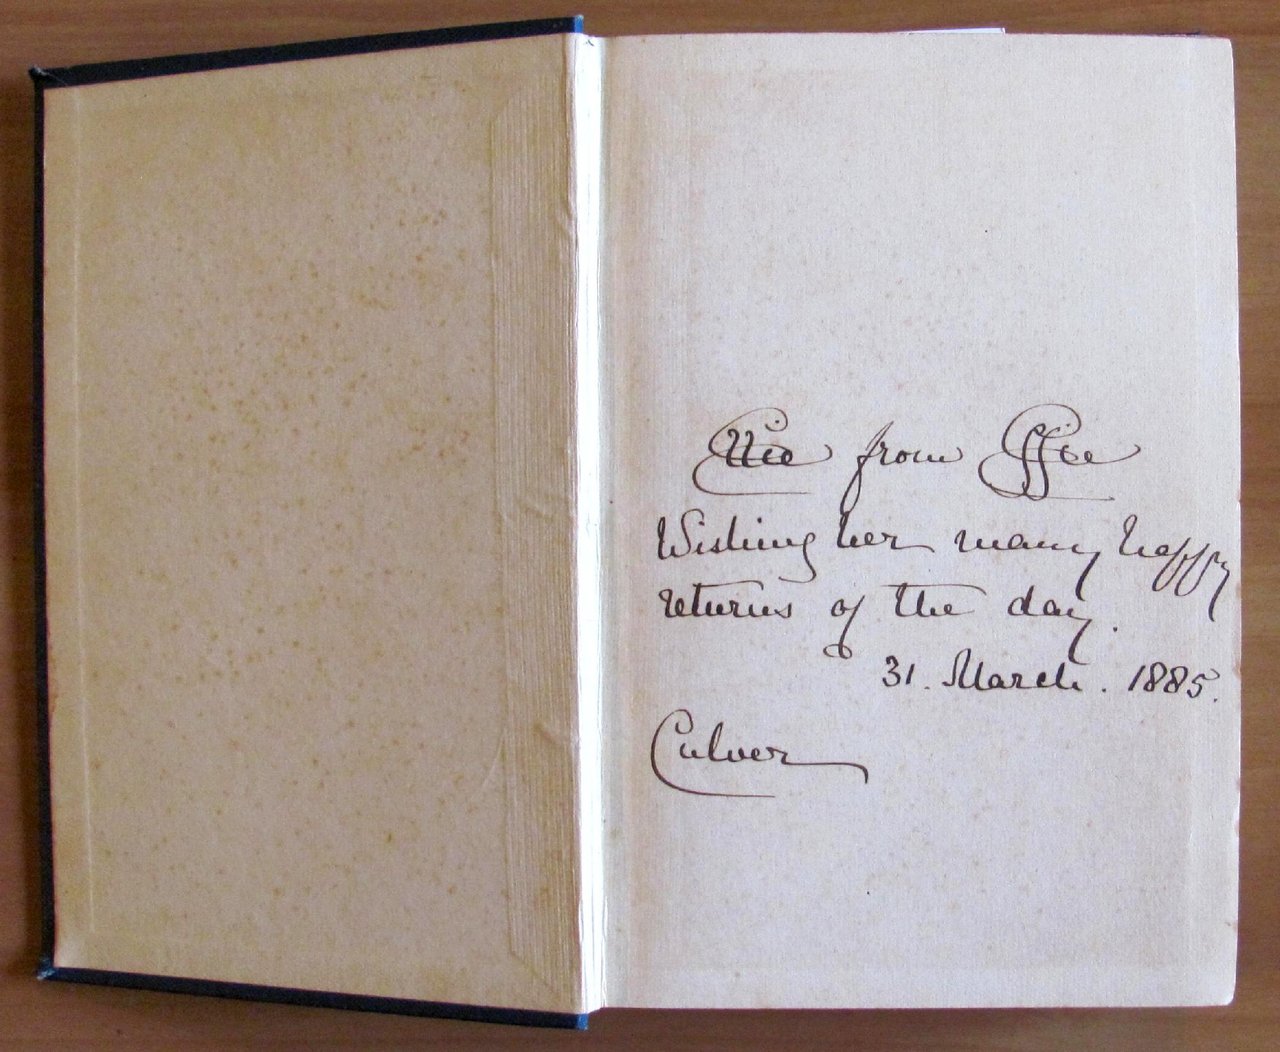 Ettie from Effie
Wishing her many happy
returns of the day.
31. March. 1885.
Culver